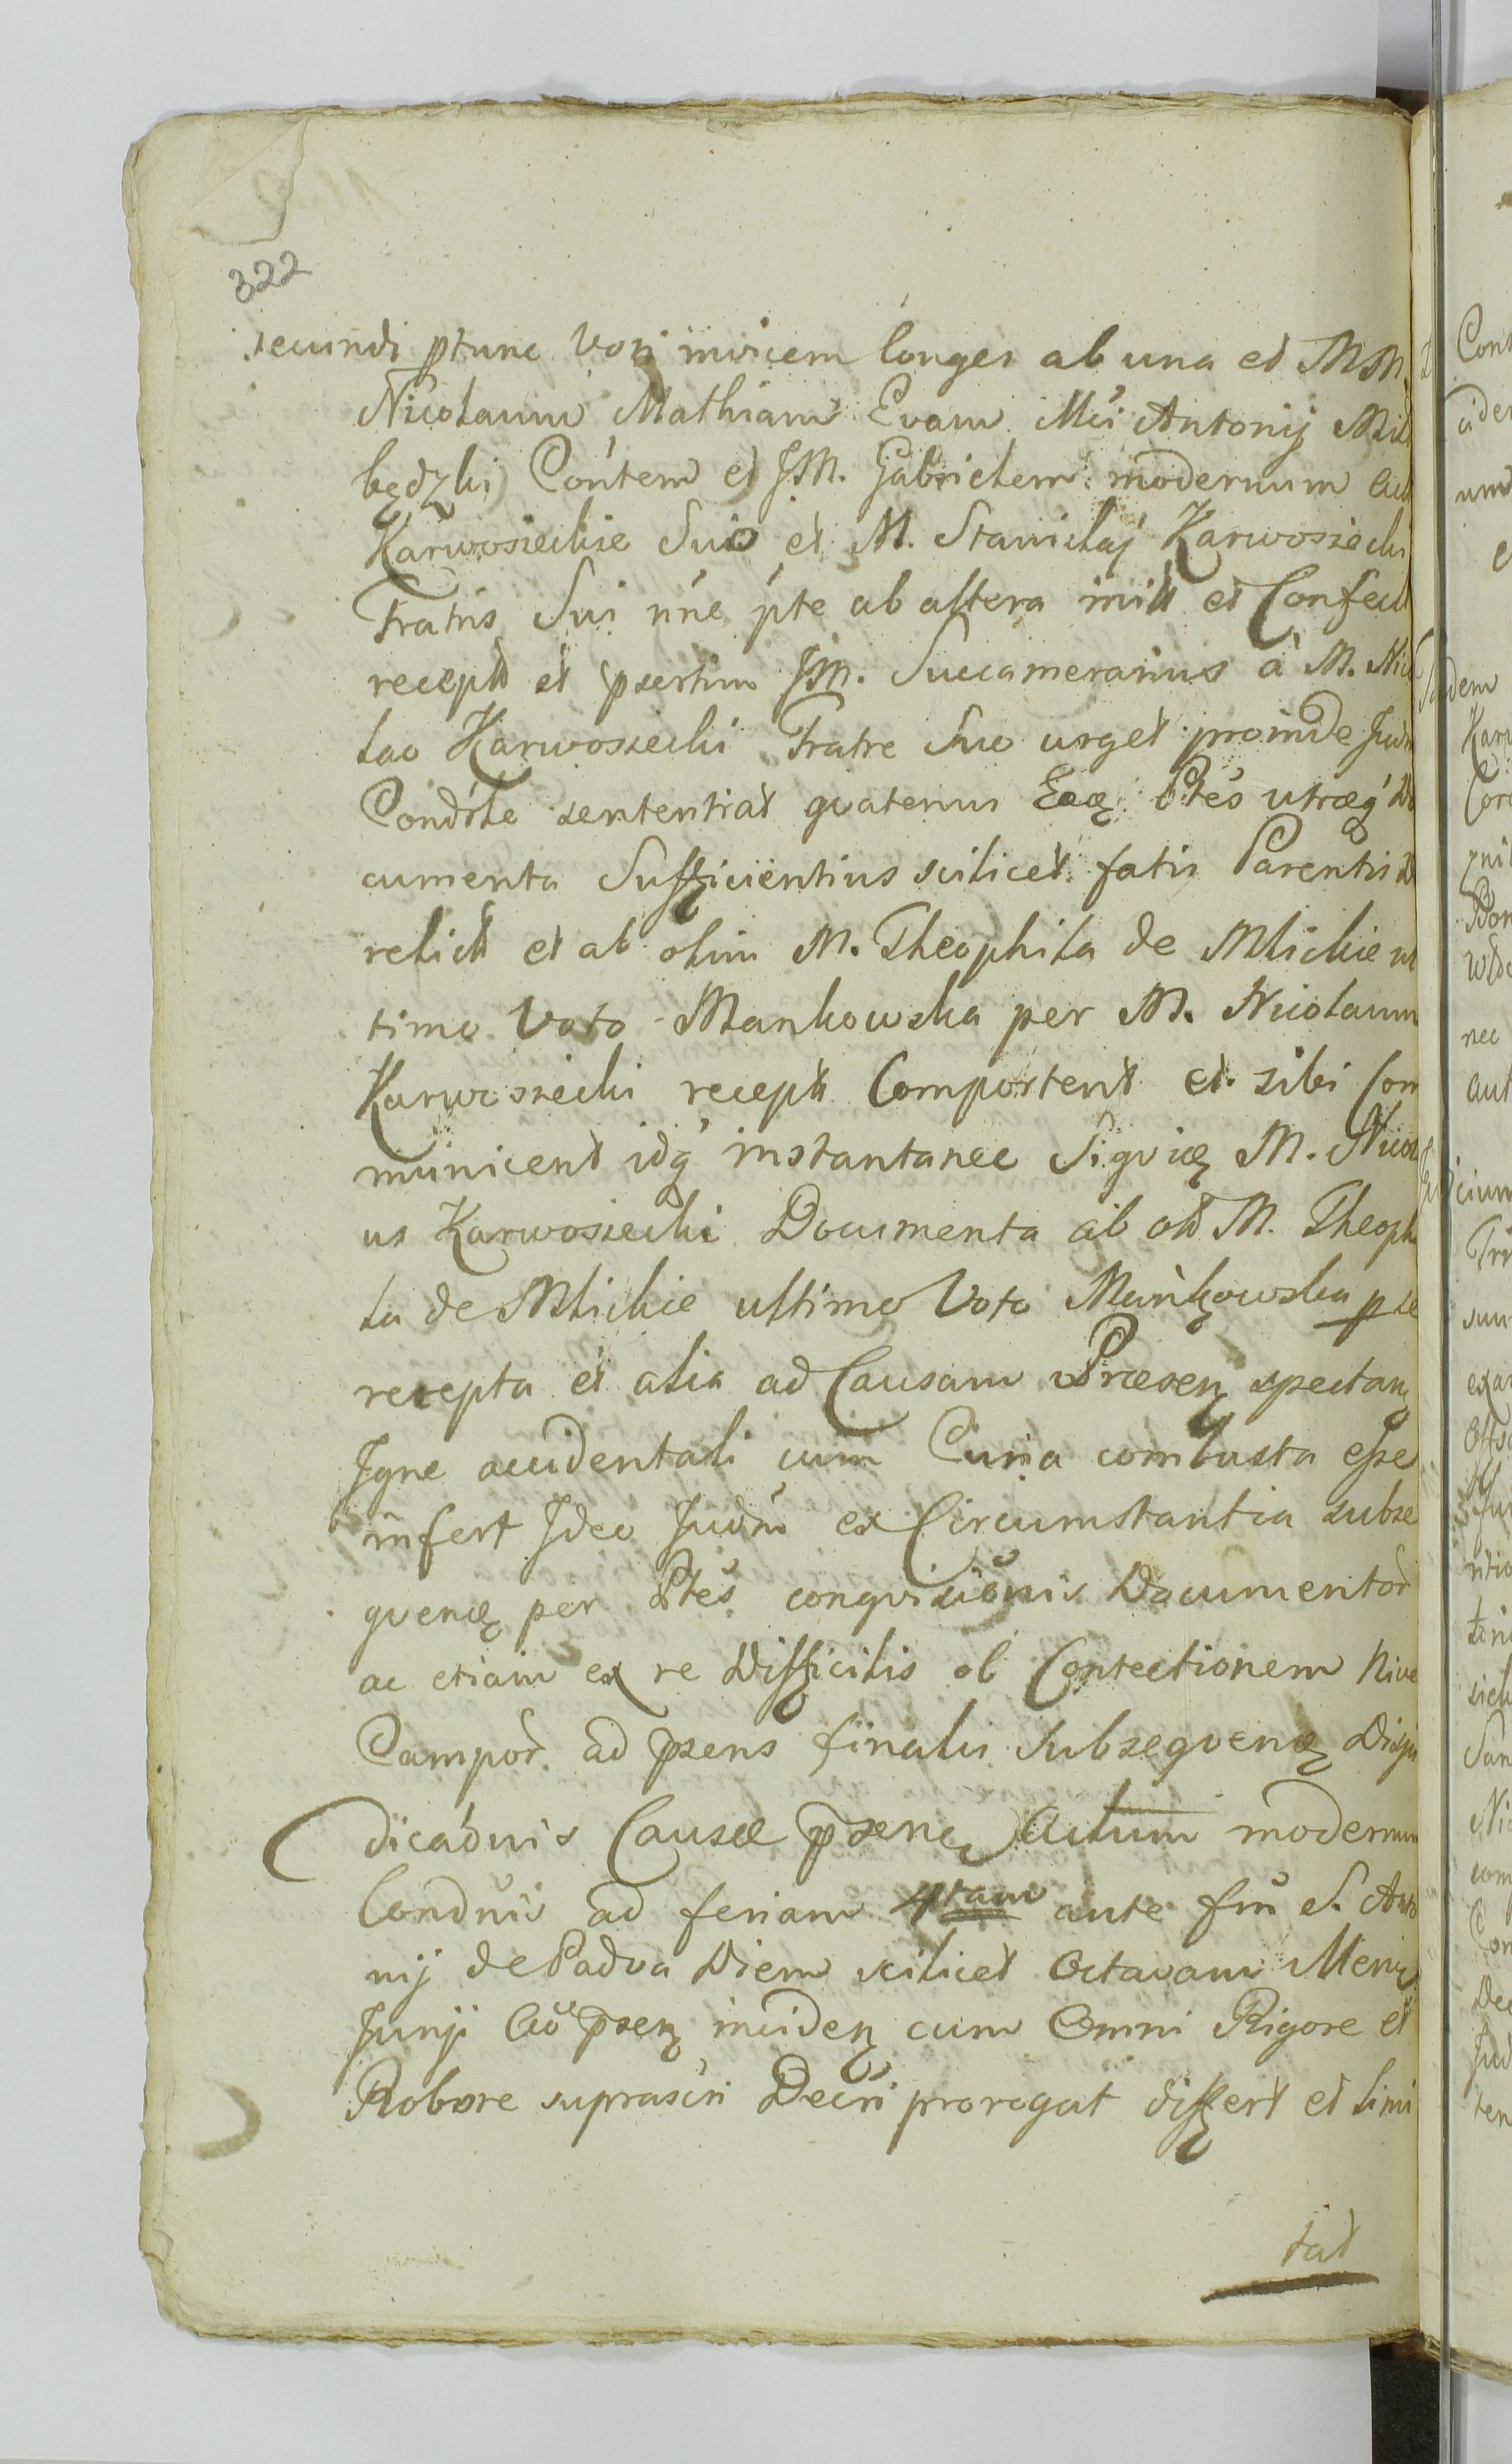 322
secundi ptunc Voti invicem longer ab una et MM.
Nicolaum Mathiam Evam Mci Antonij Mil
będzki Contem et JM. Gabrielem modernum
Karwosieckie Suo et M. Stanislaj Karwosiecki
Fratris Sui nne pte ab altera init et Confect
recept et psertim JM. Succamerarius à M. Nico
lao Karwosiecki Fratre Suo urget proinde Judm
Condrle sententiat qvatenus Eaę Ptes utraeq' do
cumenta Sufficientius scilicet fatis Parentis
relict et ab olim M. Theophila de Mlickie ul
timo Voto Mankowska per M. Nicolaum
Karwosiecki recept Comportent et sibi Com
municent idq' instantanee Siqvidę M. Nicol
us Karwosiecki Documenta ab ol M. Theophi
la de Mlickie ultimo Voto Mankowska p se
recepta et alia ad Causam Praesenę spectanę
Igne accidentali cum Curia combusta esse
infert Ideo Judm ex Circumstantia subse
qvenę per Ptes conqvisionis Documentor
ac etiam ex re Difficilis ob Contectionem Nive
Campor ad psens finalis Subseqvenę Diju
dicaonis Causae psenę Actum modernum
Condnis ad feriam 4tam ante fm S. Anto
nij de Padva Diem scilicet Octavam Mensis
Junij Ao psenę incidenę cum Omni Rigore et
Robore suprascri Decri prorogat differt et limi
tat